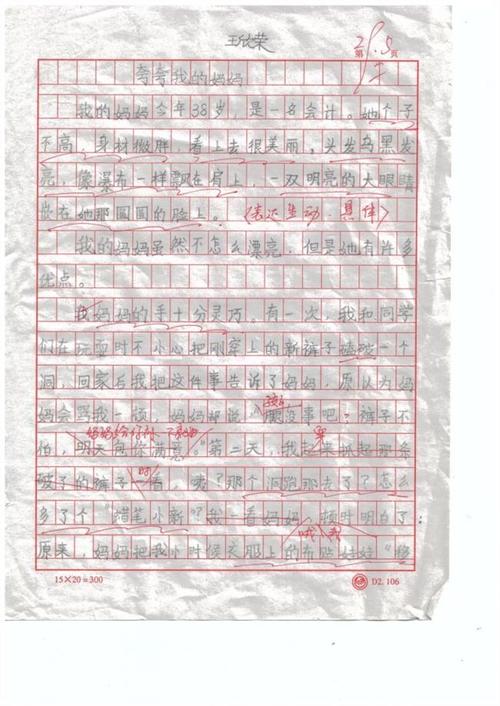 王欣荣
第 页
夸夸我的妈妈
我的妈妈今年38岁，是一名会计。她个子
不高，身材微胖，看上去很美丽，头发乌黑发
亮，像瀑布一样飘在肩上，一双明亮的大眼睛
嵌在她那圆圆的脸上。（表达生动、具体）
我的妈妈虽然不怎么漂亮，但是她有许多
优点。
我妈妈的手十分灵巧，有一次，我和同学
们在玩耍时不小心把刚穿上的新裤子磕破一个
洞，回家后我把这件事告诉了妈妈，原以为妈
妈会骂我一顿，妈妈却说 没事吧？裤子不
怕，明天包你满意。”第二天，我起来抓起那条
破了的裤子一看，咦？那个洞跑那去了？怎么
多了个“蜡笔小新”？我一看妈妈，顿时明白了：
原来，妈妈把我小时候衣服上的布贴娃娃“移
15×20=300
D2.106